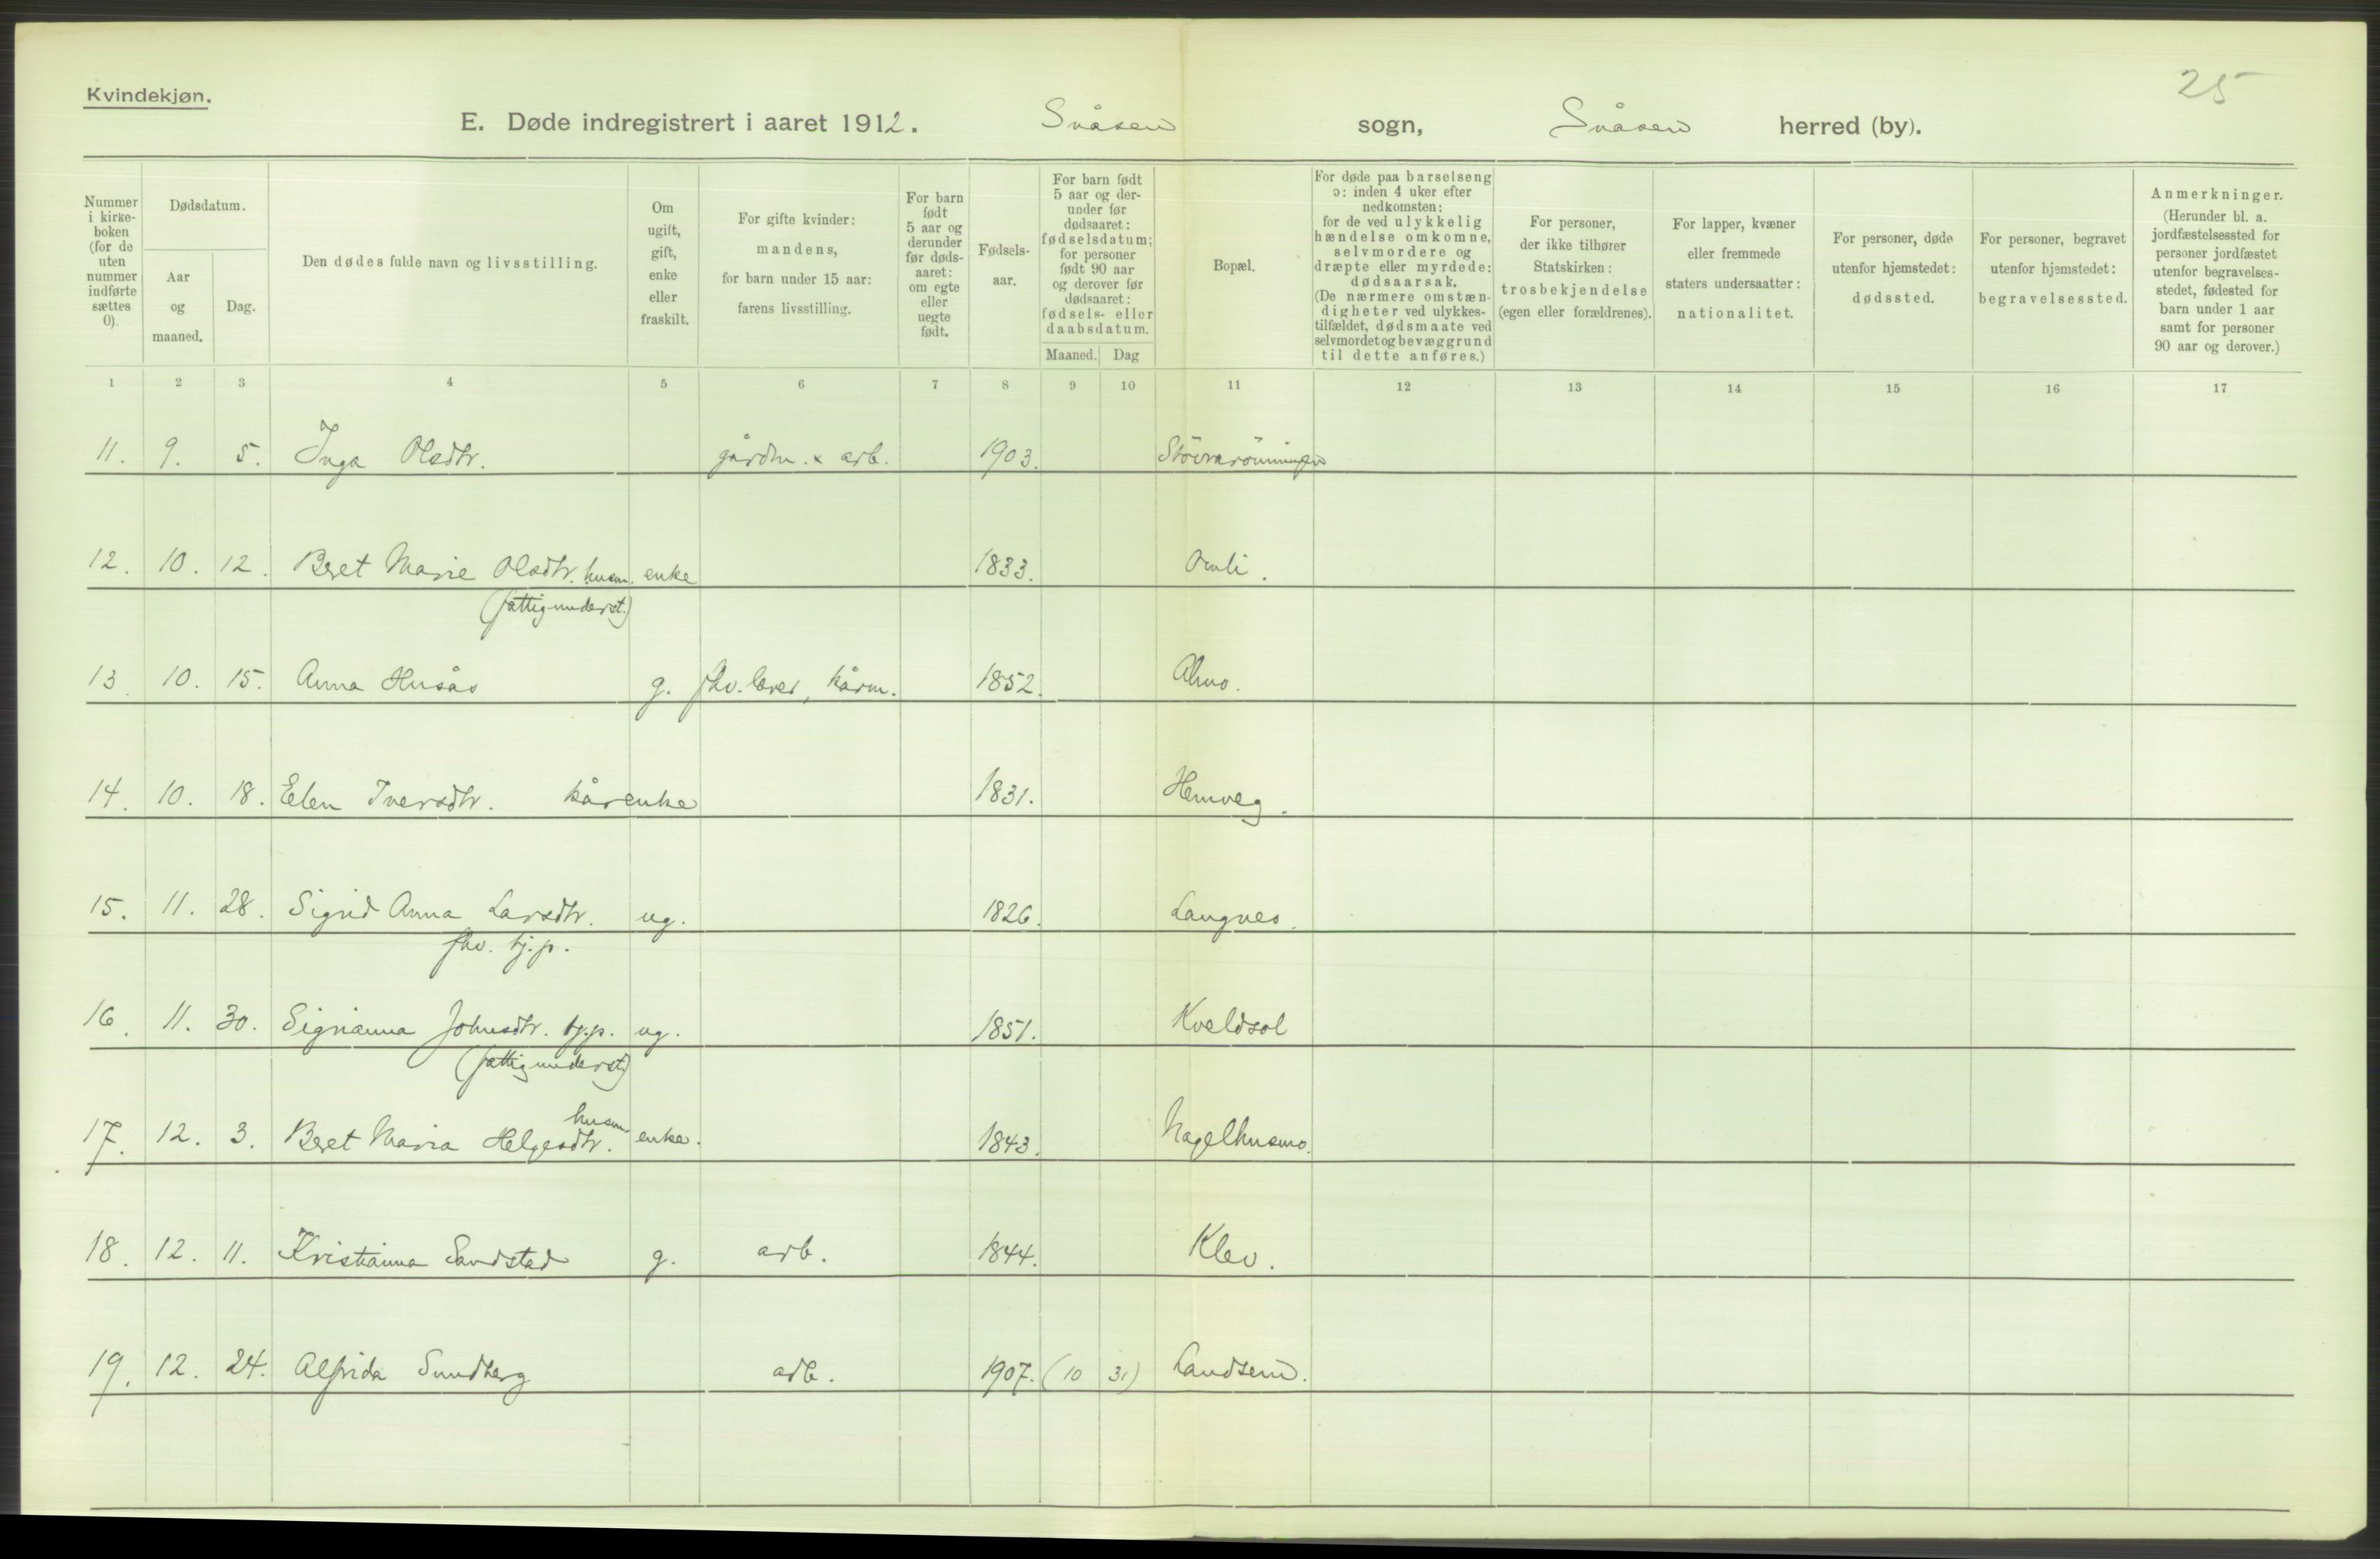 25
Kvindekjøn.
E. Døde indregistrert i aaret 1912. Snåsen sogn, Snåsen herred (by).
Nummer i kirke-boken (for de uten nummer indførte sættes 0).
Dødsdatum.
Aar og maaned.
Dag.
Den dødes fulde navn og livsstilling.
Om ugift, gift, enke eller fraskilt.
For gifte kvinder: mandens, for barn under 15 aar: farens livsstilling.
For barn født 5 aar og derunder før døds-aaret: om egte eller uegte født.
Fødsels-aar.
For barn født 5 aar og der-under før dødsaaret: fødselsdatum; for personer født 90 aar og derover før dødsaaret: fødsels- eller daabsdatum.
Maaned. Dag
Bopæl.
For døde paa barselseng ɔ: inden 4 uker efter nedkomsten: for de ved ulykkelig hændelse omkomne, selvmordere og dræpte eller myrdede: dødsaarsak. (De nærmere omstæn-digheter ved ulykkes-tilfældet, dødsmaate ved selvmordet og bevæggrund til dette anføres.)
For personer, der ikke tilhører Statskirken: trosbekjendelse (egen eller forældrenes).
For lapper, kvæner eller fremmede staters undersaatter: nationalitet.
For personer, døde utenfor hjemstedet: dødssted.
For personer, begravet utenfor hjemstedet: begravelsessted.
Anmerkninger. (Herunder bl. a. jordfæstelsessted for personer jordfæstet utenfor begravelses-stedet, fødested for barn under 1 aar samt for personer 90 aar og derover.)
1 2 3 4 5 6 7 8 9 10 11 12 13 14 15 16 17
11. 9. 5. Inga Olsdtr. gårdm. x arb. 1903.
12. 10. 12. Beret Marie Olsdtr. husm. enke 1833. Omli.
(fattigunderst.)
13. 10. 15. Anna Husås g. fhv. lærer, kårm. 1852. Almo.
14. 10. 18. Elen Iversdtr. kårenke 1831. Hemveg.
15. 11. 28. Sigrid Anna Larsdtr. ug. 1826. Langnes.
fhv. tj.p.
16. 11. 30. Sigrianna Johnsdtr. tj.p. ug. 1851. Kveldsol
(fattigunderst.)
17. 12. 3. Beret Maria Helgesdtr. husm. enke. 1843. Nagelhusmo.
18. 12. 11. Kristianna Sandstad g. arb. 1844. Klev.
19. 12. 24. Alfrida Sundberg arb. 1907. (10 31) Landsem.